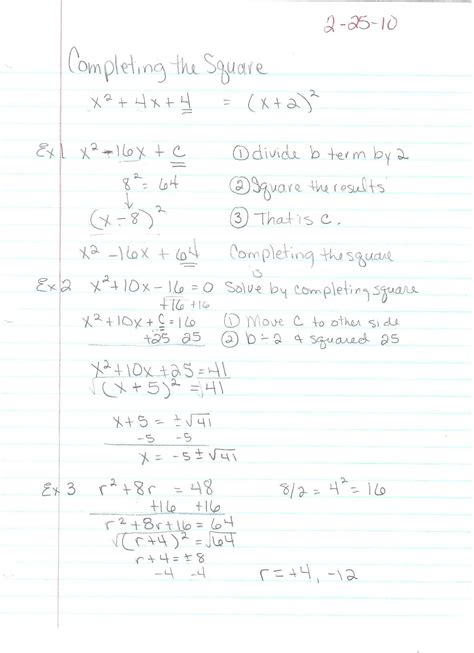 2-25-10
Completing the Square
x² + 4x + 4 = (x+2)²
Ex 1 x² - 16x + C ① divide b term by 2
8² = 64 ② Square the results
↓
(x - 8)² ③ That is C.
x² - 16x + 64 Completing the square
Ex 2 x² + 10x - 16 = 0 Solve by completing square
+16 +16
x² + 10x + C = 16 ① Move C to other side
+25 25 ② b ÷ 2 & squared 25
x² + 10x + 25 = 41
√(x + 5)² = √41
x + 5 = ±√41
-5 -5
x = -5 ± √41
Ex 3 r² + 8r = 48 8/2 = 4² = 16
+16 +16
r² + 8r + 16 = 64
√(r+4)² = √64
r + 4 = ±8
-4 -4 r = +4, -12